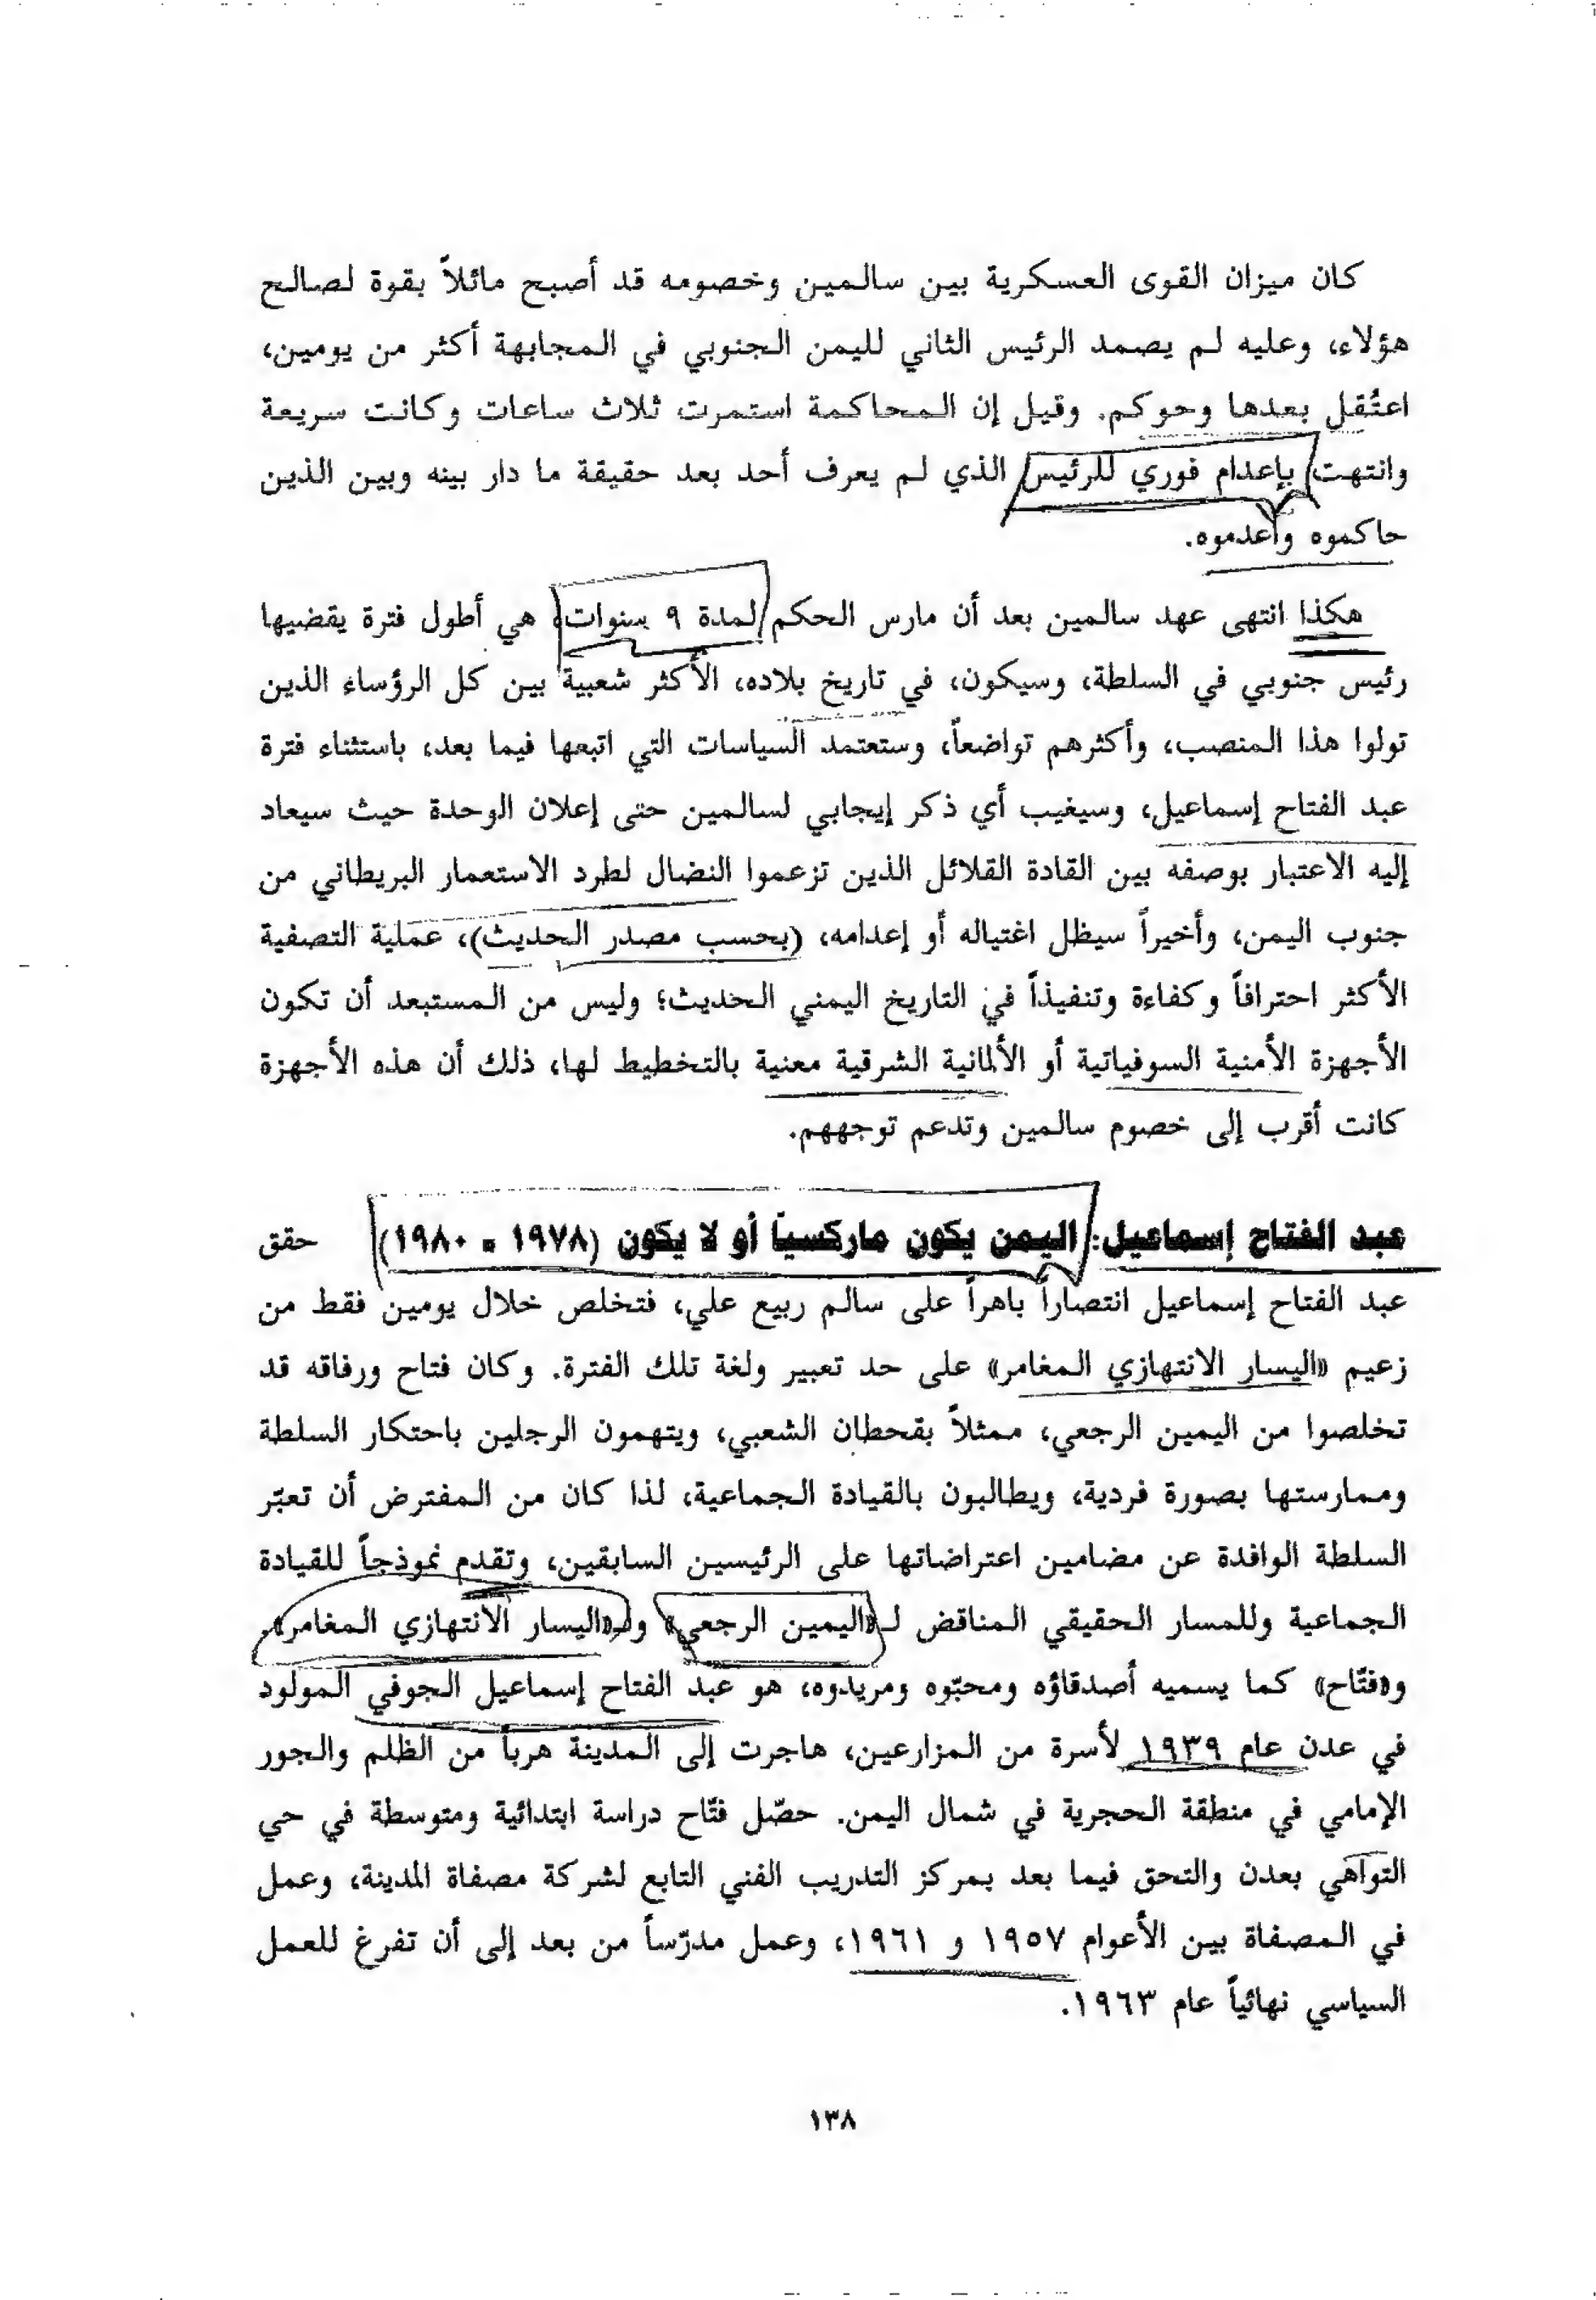 كان ميزان القوى العسكرية بين سالمين وخصومه قد أصبح مائلاً بقوة لصالح
هؤلاء، وعليه لم يصمد الرئيس الثاني لليمن الجنوبي في المجابهة أكثر من يومين،
اعتُقل بعدها وحوكم. وقيل إن المحاكمة استمرت ثلاث ساعات وكانت سريعة
وانتهت بإعدام فوري للرئيس الذي لم يعرف أحد بعد حقيقة ما دار بينه وبين الذين
حاكموه وأعدموه.
هكذا انتهى عهد سالمين بعد أن مارس الحكم لمدة ٩ سنوات، هي أطول فترة يقضيها
رئيس جنوبي في السلطة، وسيكون، في تاريخ بلاده، الأكثر شعبية بين كل الرؤساء الذين
تولوا هذا المنصب، وأكثرهم تواضعاً، وستعتمد السياسات التي اتبعها فيما بعد، باستثناء فترة
عبد الفتاح إسماعيل، وسيغيب أي ذكر إيجابي لسالمين حتى إعلان الوحدة حيث سيعاد
إليه الاعتبار بوصفه بين القادة القلائل الذين تزعموا النضال لطرد الاستعمار البريطاني من
جنوب اليمن، وأخيراً سيظل اغتياله أو إعدامه، (بحسب مصدر الحديث)، عملية التصفية
الأكثر احترافاً وكفاءة وتنفيذاً في التاريخ اليمني الحديث؛ وليس من المستبعد أن تكون
الأجهزة الأمنية السوفياتية أو الألمانية الشرقية معنية بالتخطيط لها، ذلك أن هذه الأجهزة
كانت أقرب إلى خصوم سالمين وتدعم توجههم.
عبد الفتاح إسماعيل: اليمن يكون ماركسياً أو لا يكون (١٩٧٨ - ١٩٨٠) حقق
عبد الفتاح إسماعيل انتصاراً باهراً على سالم ربيع علي، فتخلص خلال يومين فقط من
زعيم «اليسار الانتهازي المغامر» على حد تعبير ولغة تلك الفترة. وكان فتاح ورفاقه قد
تخلصوا من اليمين الرجعي، ممثلاً بقحطان الشعبي، ويتهمون الرجلين باحتكار السلطة
وممارستها بصورة فردية، ويطالبون بالقيادة الجماعية، لذا كان من المفترض أن تعبّر
السلطة الوافدة عن مضامين اعتراضاتها على الرئيسين السابقين، وتقدم نموذجاً للقيادة
الجماعية وللمسار الحقيقي المناقض لـ«اليمين الرجعي» و«اليسار الانتهازي المغامر».
و«فتّاح» كما يسميه أصدقاؤه ومحبّوه ومريدوه، هو عبد الفتاح إسماعيل الجوفي المولود
في عدن عام ١٩٣٩ لأسرة من المزارعين، هاجرت إلى المدينة هرباً من الظلم والجور
الإمامي في منطقة الحجرية في شمال اليمن. حصّل فتّاح دراسة ابتدائية ومتوسطة في حي
التواهي بعدن والتحق فيما بعد بمركز التدريب الفني التابع لشركة مصفاة المدينة، وعمل
في المصفاة بين الأعوام ١٩٥٧ و ١٩٦١، وعمل مدرّساً من بعد إلى أن تفرغ للعمل
السياسي نهائياً عام ١٩٦٣.
١٣٨